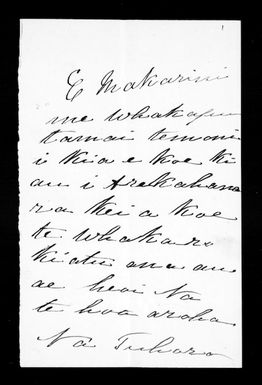 E Makarini
me whakapu
tamai temoni
i kiia e koe ki
au i Arekahana
ra kei a koe
te whakaro
kiatu ana au
ae heoi Na
te hoa aroha
Na Tuhoro